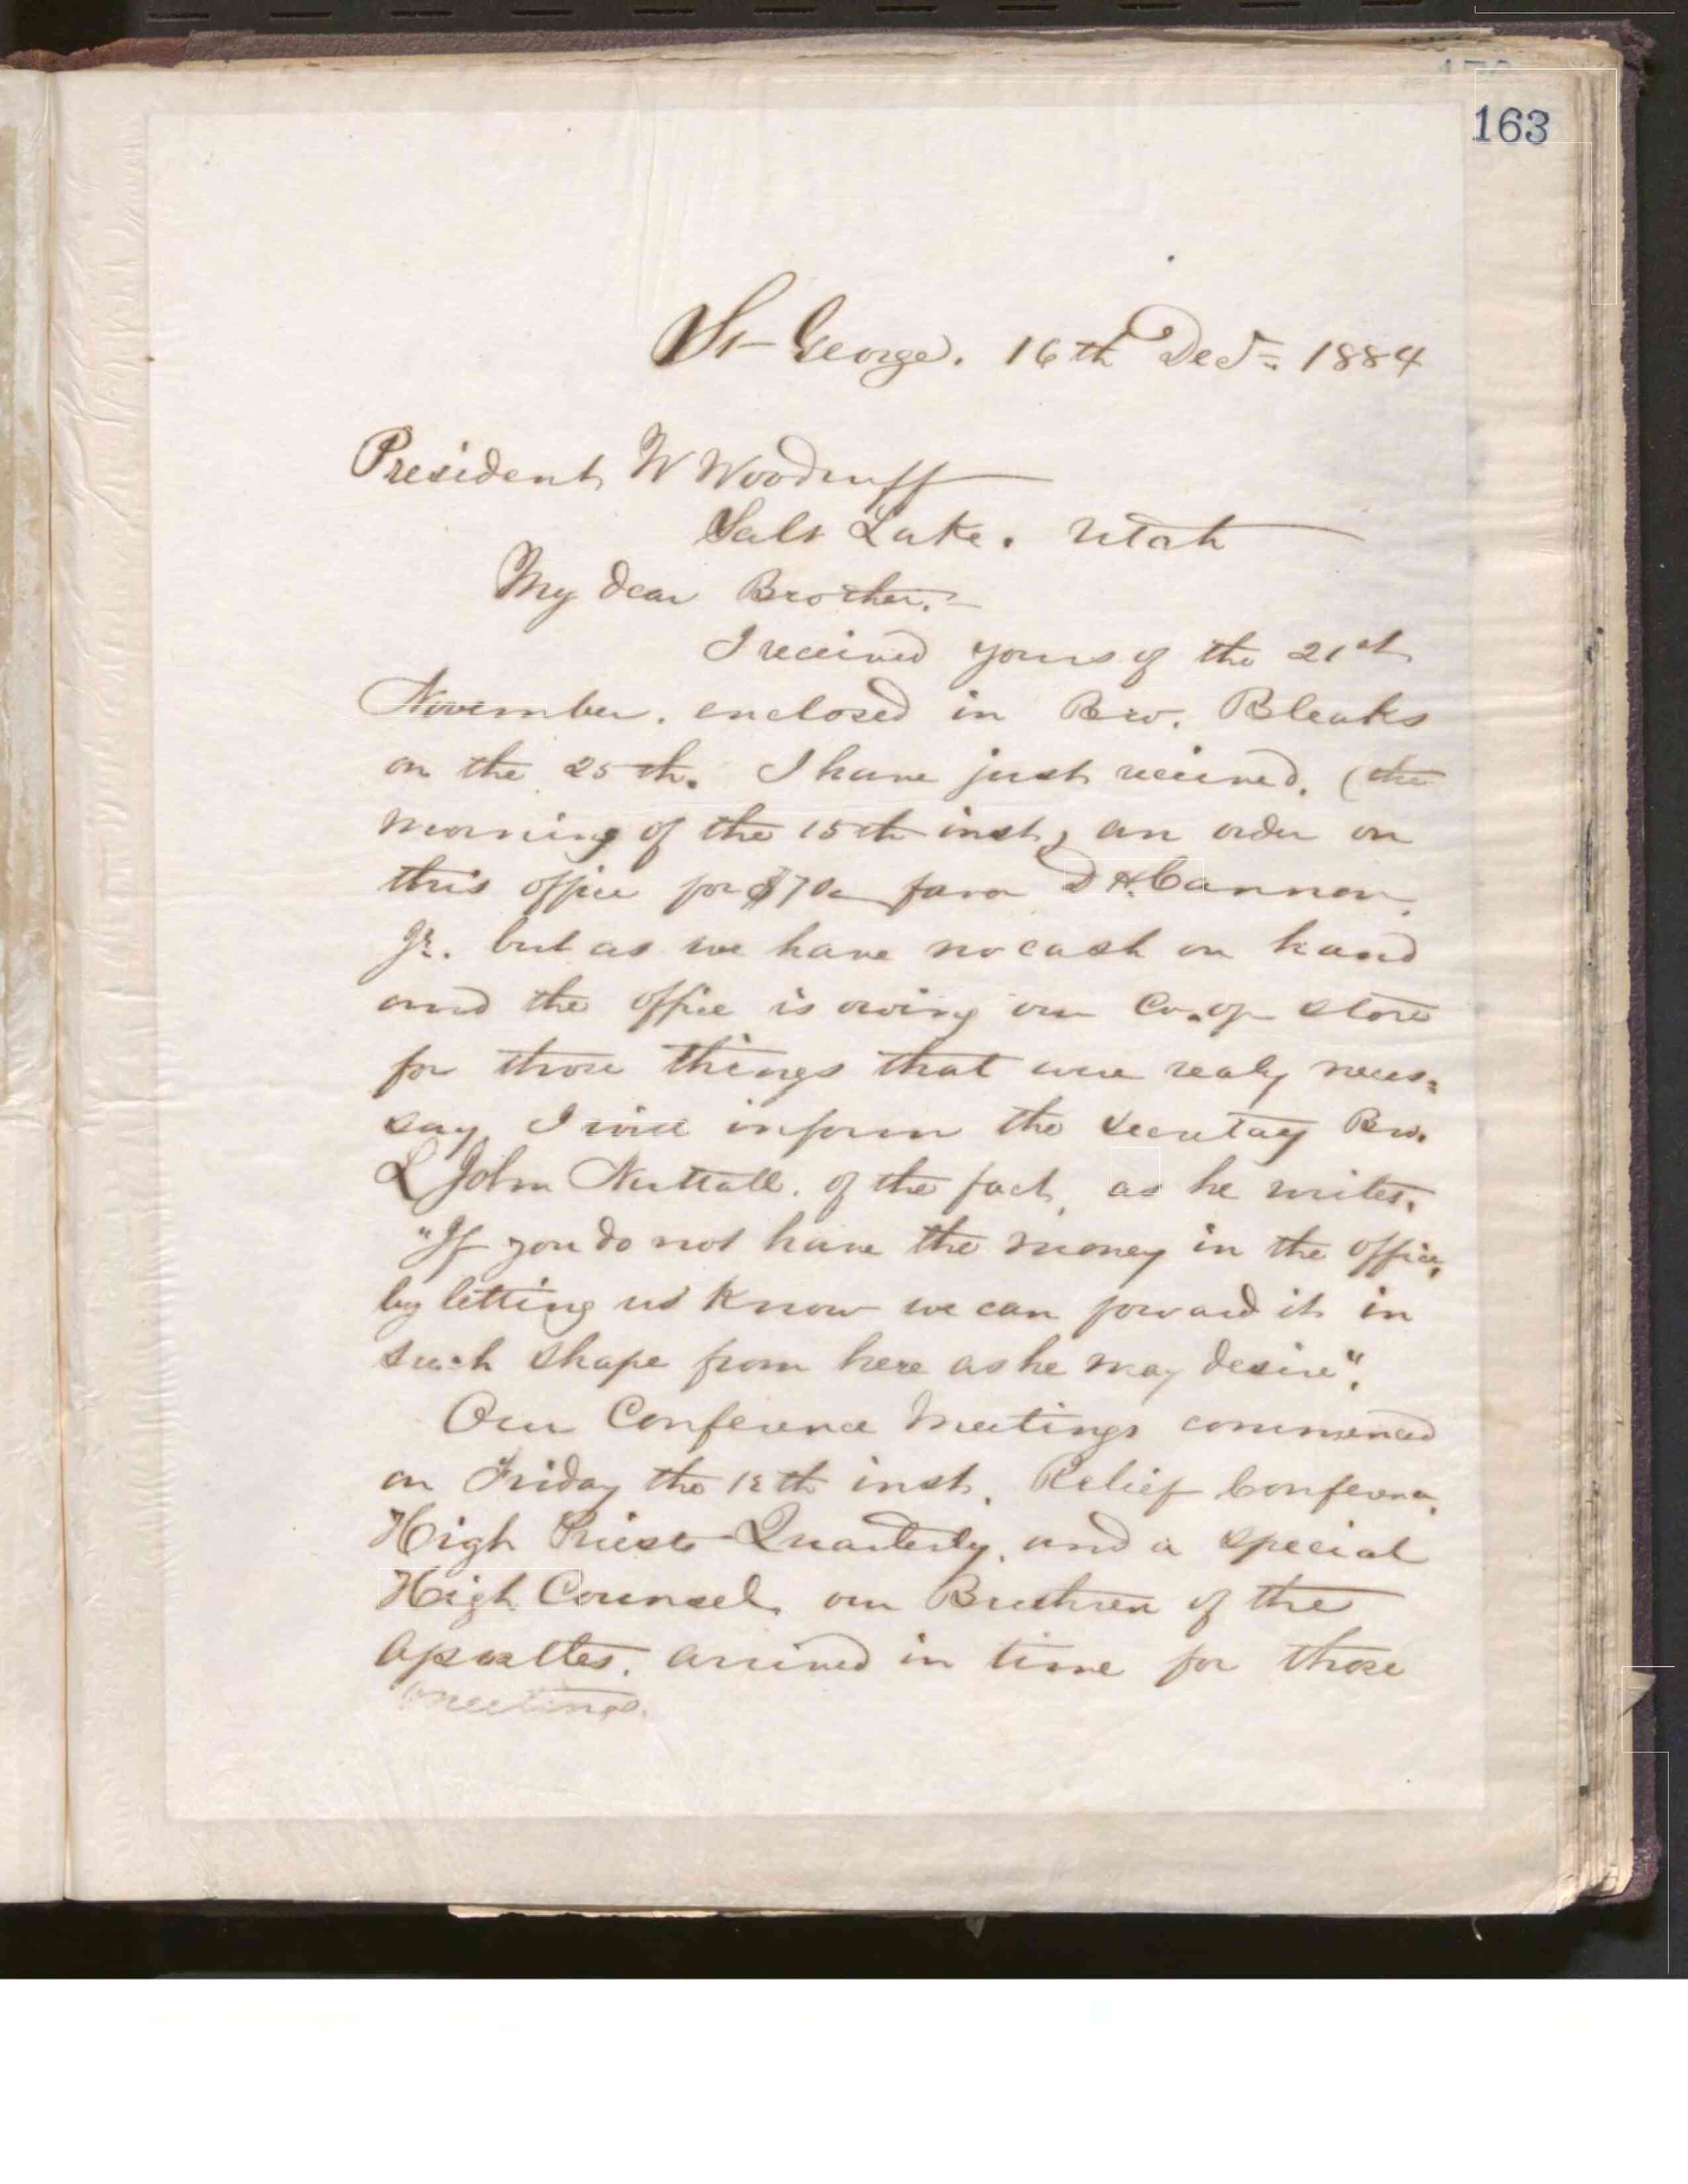 163
St George. 16th Dec. 1884
President W Woodruff
Salt Lake. Utah
My dear Brother.
I received yours of the 21st
November. enclosed in Bro. Bleaks
on the 25th. I have just received, (the
morning of the 15th inst) an order on
this office for $70 favor D H. Cannon
Jr. but as we have no cash on hand
and the office is owing our Co.op store
for those things that were realy neces=
say I will inform the secretay Bro.
L John Nuttall. of the fact, as he writes,
"If you do not have the money in the office,
by letting us know we can forward it in
such shape from here as he may desire".
Our Conference Meetings commenced
on Friday the 12th inst. Relief Conference,
High Priests Quarterly, and a special
High Counsel, our Brethren of the
Apostles. arrived in time for those
meetings.